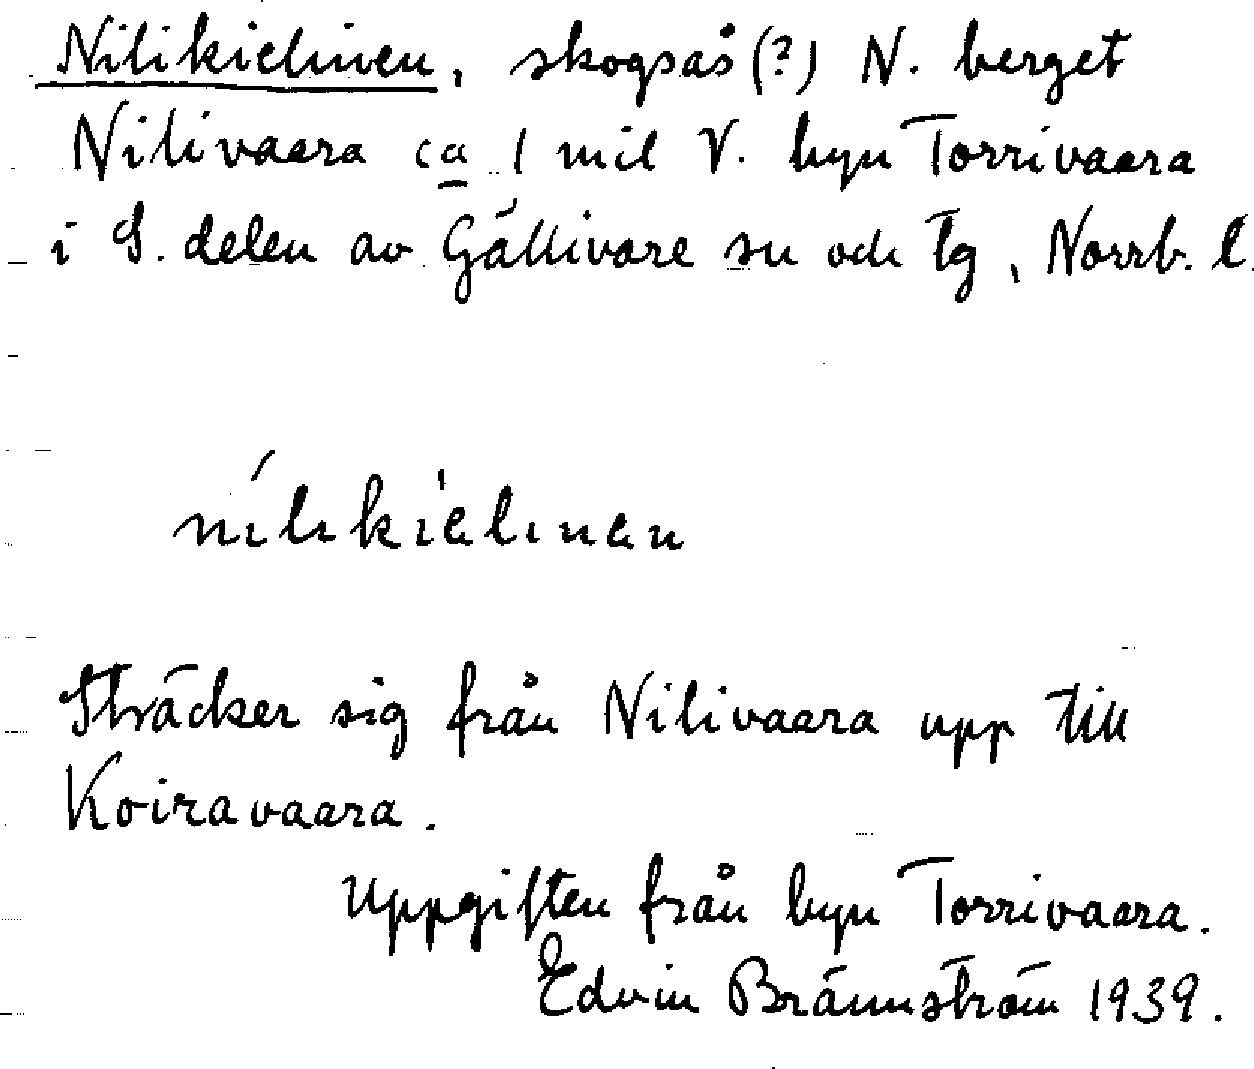 Nilikielinen, skogsås (?) N. berget
Nilivaara ca 1 mil V. byn Torrivaara
i S. delen av Gällivare sn och tg, Norrb. l.
nílikìelinen
Sträcker sig från Nilivaara upp till
Koiravaara.
Uppgiften från byn Torrivaara.
Edvin Brännström 1939.